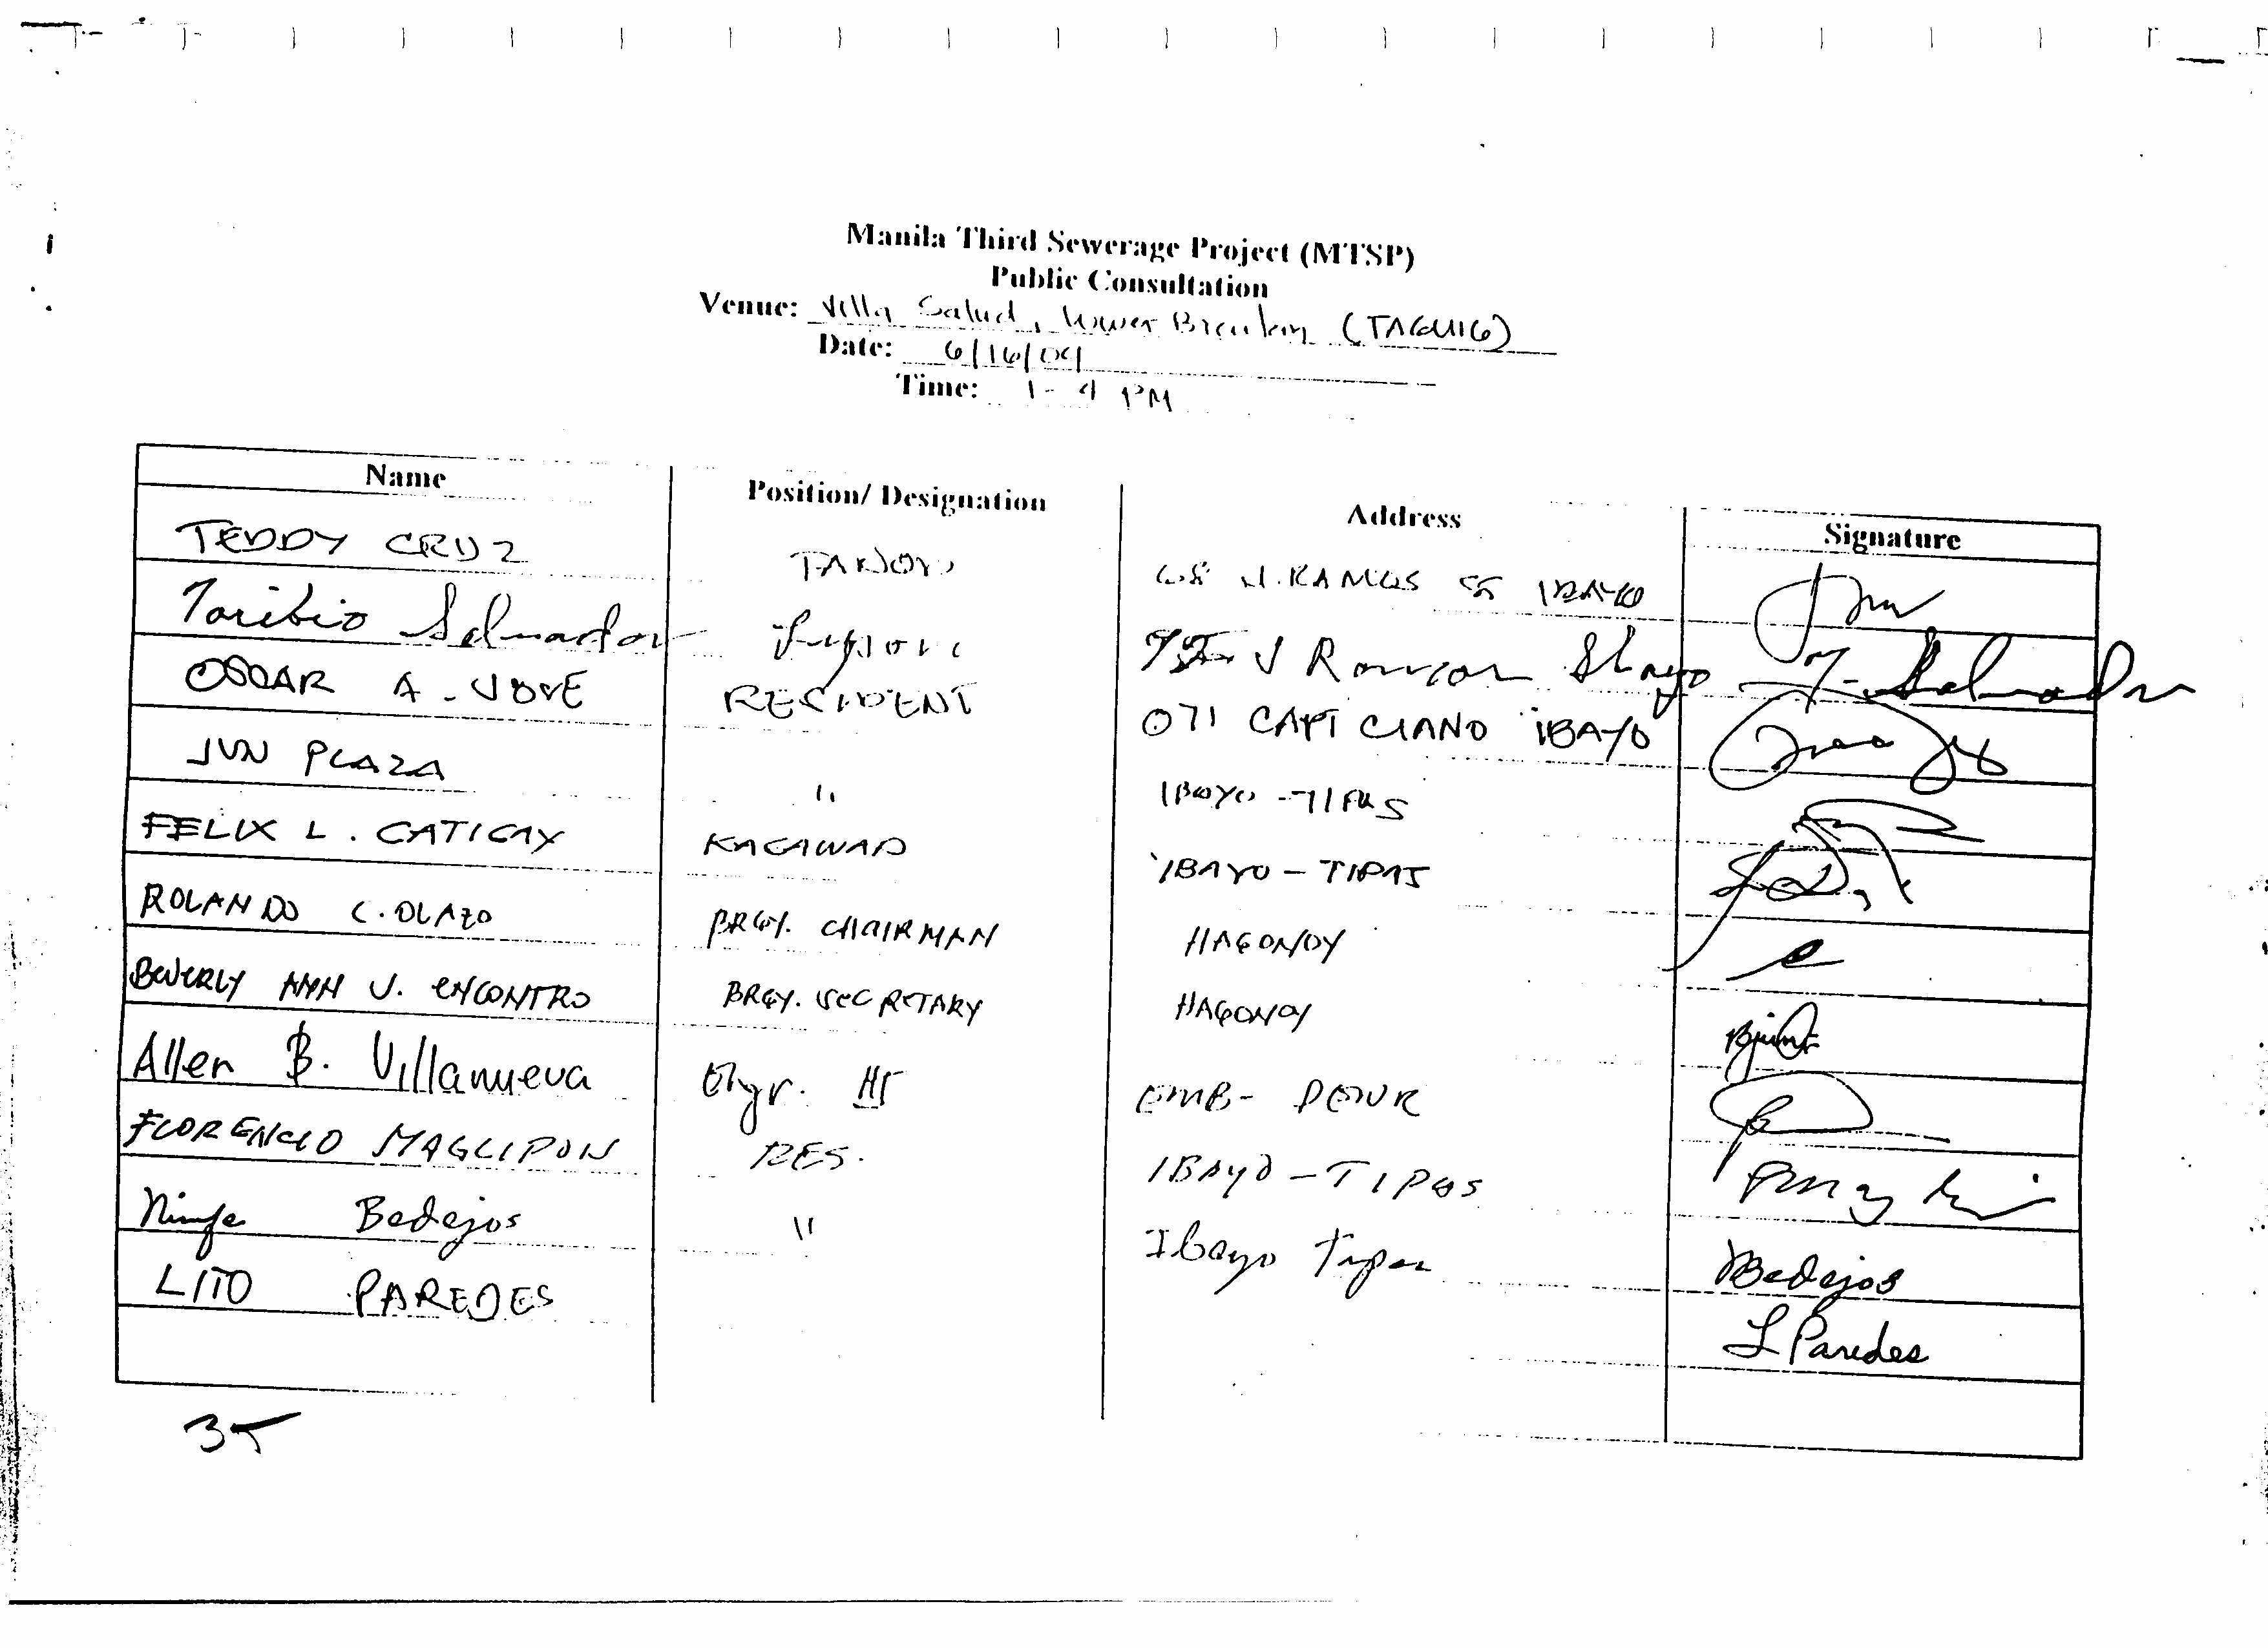 Manila Third Sewerage Project (MTSP)
Public Consultation
Venue: Villa Salud, Lower Bicutan (TAGUIG)
Date: 6/16/04
Time: 1 - 4 PM
Name Position/ Designation Address Signature
TEDDY CRUZ TANOD J. RAMOS IBAYO
Toribio Salvador Ibayo T. Salvador
OSCAR A. JOVE RESIDENT 071 CAPT CIANO IBAYO
JUN PLAZA " IBAYO - TIPAS
FELIX L. CATIGAY KAGAWAD IBAYO - TIPAS
ROLANDO C. OLAZO BRGY. CHAIRMAN HAGONOY
BEVERLY ANN J. ENCONTRO BRGY. SECRETARY HAGONOY
Allen B. Villanueva Engr. III EMB - DENR
FLORENCIO MAGLIPON RES. IBAYO - TIPAS
Ninfa Bedejos " Ibayo Tipas NBedejos
LITO PAREDES L Paredes
35